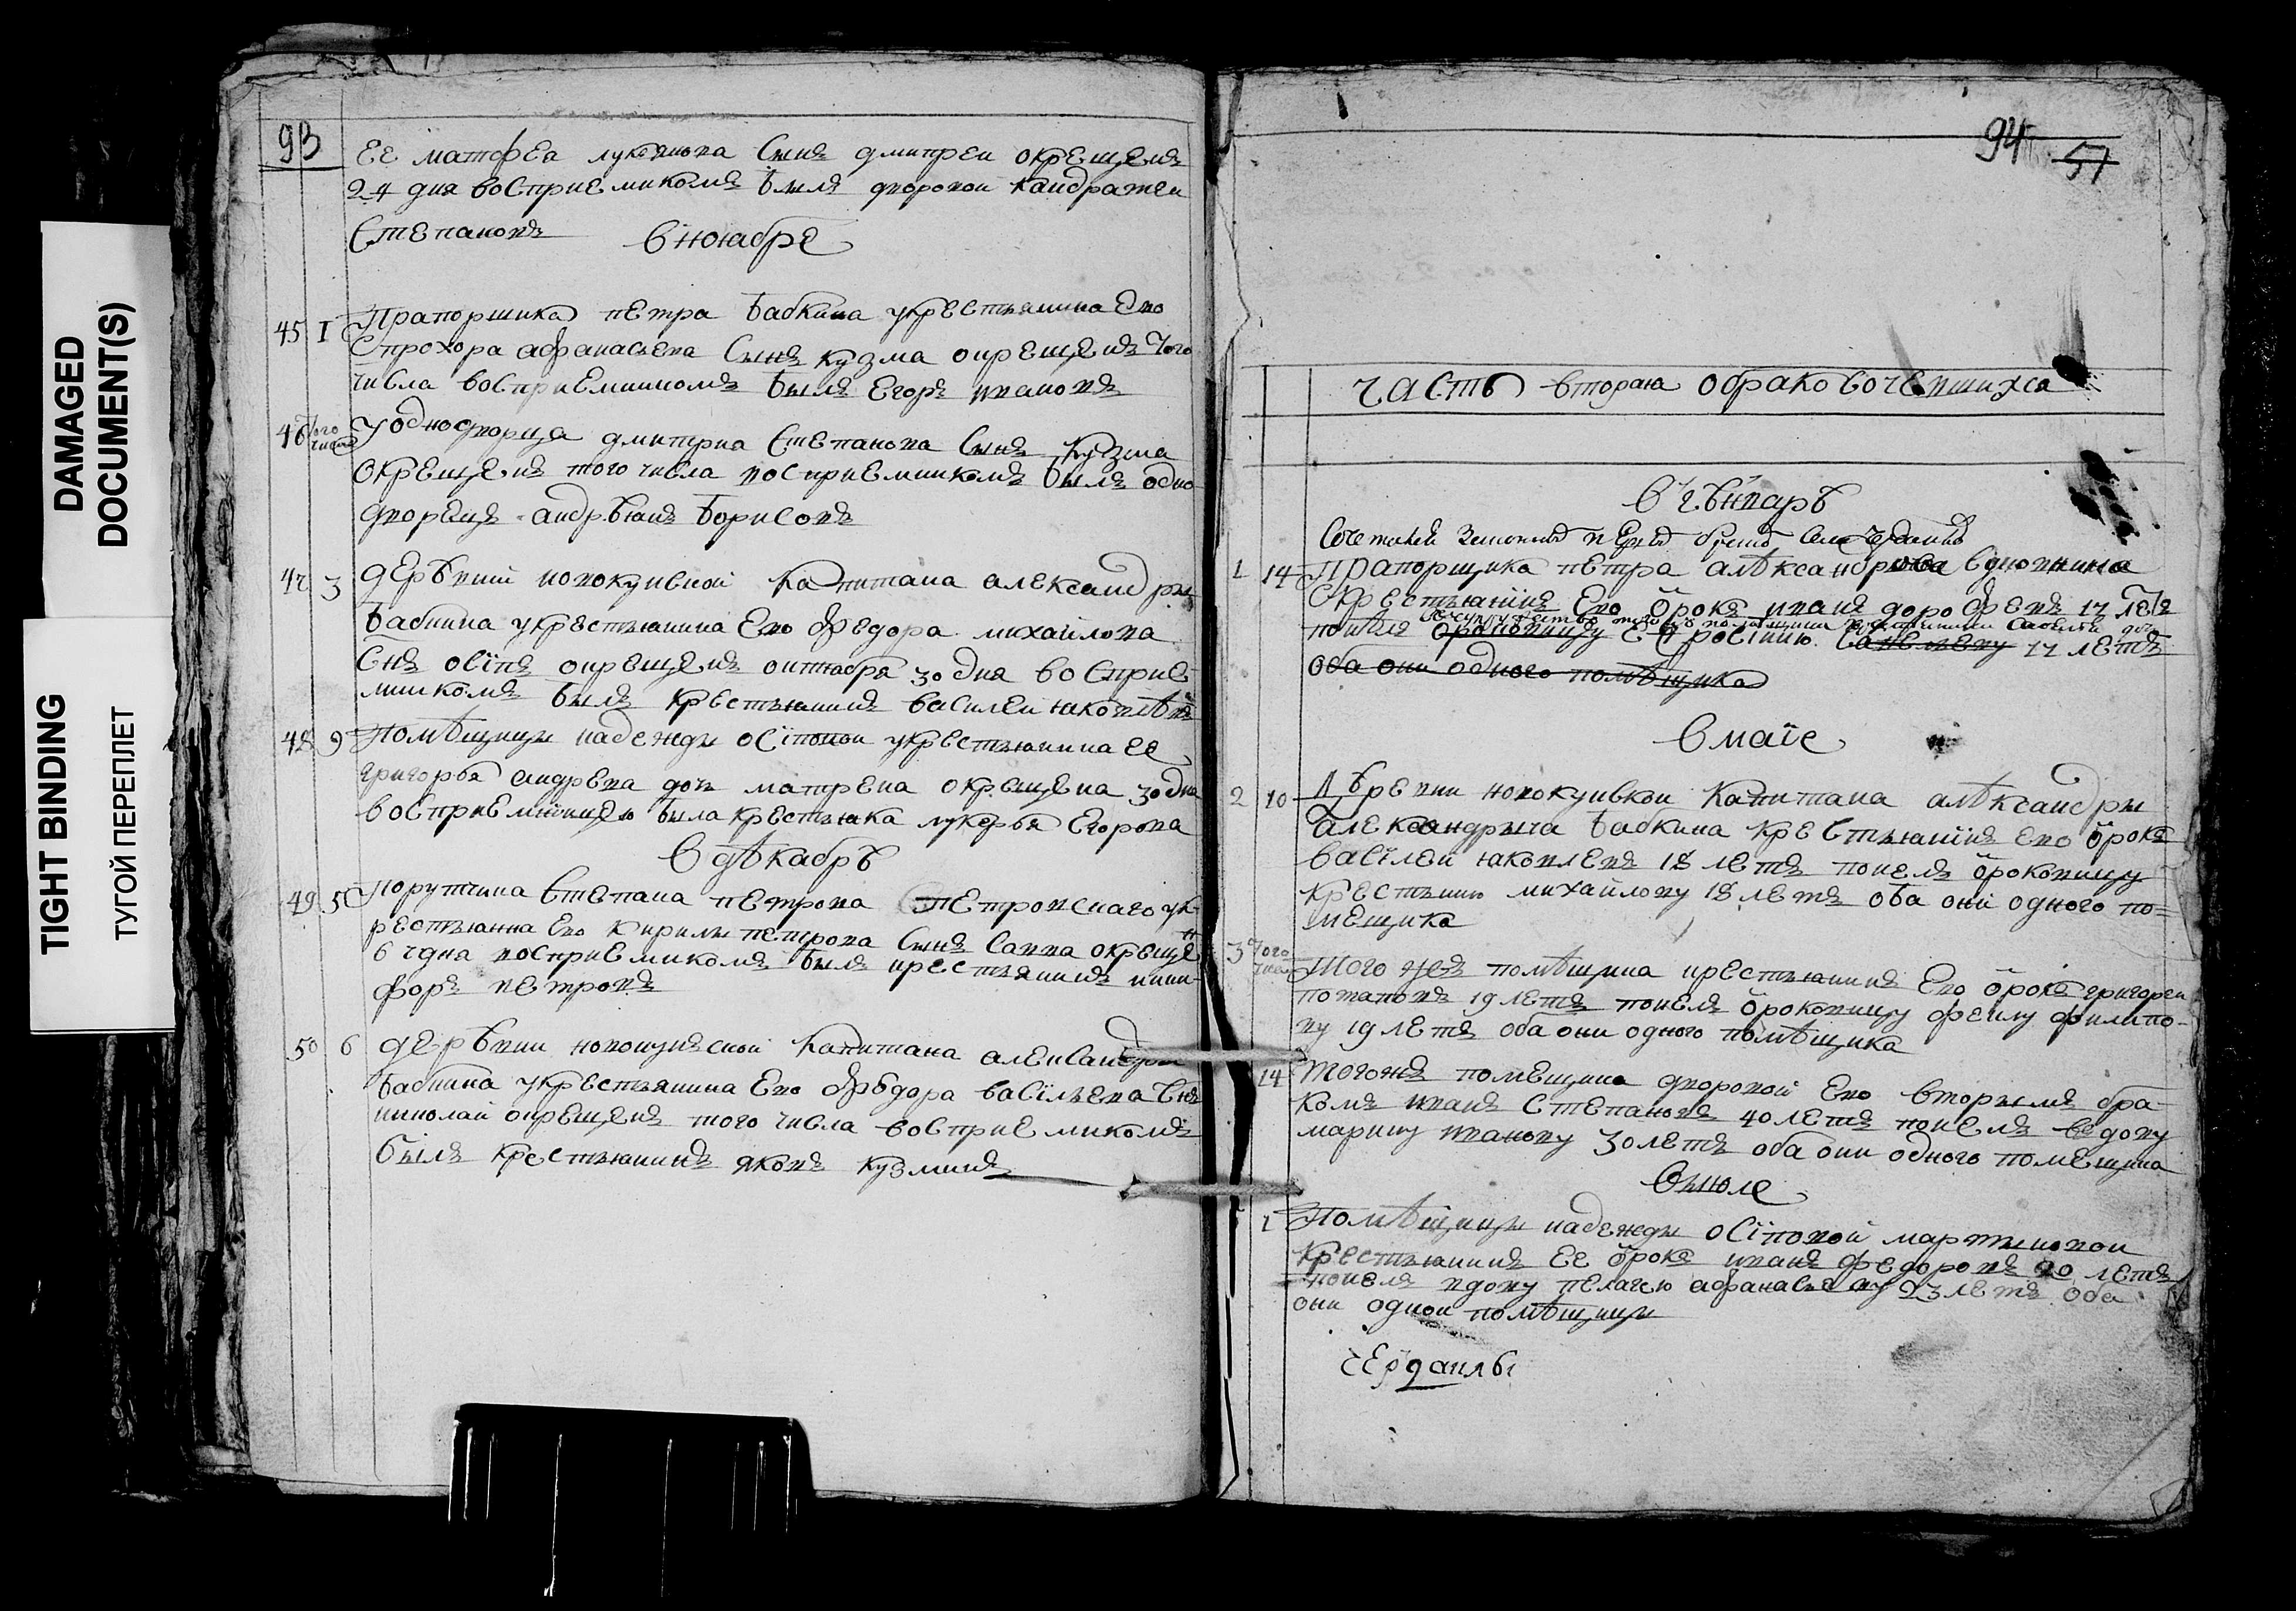 DAMAGED
DOCUMENT(S)
TIGHT BINDING
ТУГОЙ ПЕРЕПЛЕТ
93
ее матфеа лукянова сынъ дмитреи окрещенъ
24 дня восприемникомъ былъ дворовои кандратеи
степановъ
в ноюабре
45 1 Прапоршика петра бабкина укрестьянина Ево
прохора афанасьева сынъ кузма окрещенъ того
числа восприемникомъ былъ Егоръ ивановъ
46 того числа У однодворца дмитриа степанова сынъ кузма
окрещенъ того числа восприемникомъ былъ одно-
дворецъ андрѣюанъ борисовъ
47 3 деръвни новокуивской капитана александры
бабкина укрестьюанина Ево федора михайлова
снъ осїпъ окрещенъ октнабря 30 дня восприе-
мникомъ былъ крестьюанинъ василеи юаковлѣвъ
48 9 Помѣщицы надежды осїповои укрестьюанина ее
григорья андрева дочь матрена окрещена 30 дня
восприемницею была крестьюанка лукерья Егорова
в дѣкабрѣ
49 5 Порутчика степана петрова петровскаго ук-
рестьянна Ево кирилы петрова сынъ савва окреще
6 ч дня восприемникомъ былъ крестьянинъ ники-
форъ петровъ
50 6 деръвни новокуивской капитана александры
бабкина укрестьянина Ево федора васїльева снъ
николай окрещенъ того числа восприемникомъ
былъ крестьюанинъ яковъ кузминъ
94 57
часть втораю обрако сочевшихса
в гѣнваръ
Сочетаней законнымъ первымъ бракомъ села
1 14 Прапорщика петра алѣксандрова
крестьюанїнъ Ево ѿрокъ иванъ дорофеевъ 17 летъ
понялъ ѿроковицу 17 летъ
оба они одного помѣщика
в маїе
2 10 Дѣревни новокуивкои капитана алѣксандры
александрыча бабкина крестьюанїнъ ево ѿрокъ
васїлеи юаковлевъ 18 летъ понелъ ѿроковицу
крестьнию михайлову 18 летъ оба онї одного по-
мещика
3 того числа Того же помѣщика крестьюанинъ Ево ѿрокъ григореи
потаповъ 19 летъ понелъ ѿроковицу феклу филипо-
ву 19 летъ оба они одного помѣщика
14 Тогожъ помещика дворовой Ево вторымъ бра-
комъ иванъ степановъ 40 летъ понелъ вдову
марину иванову 30 летъ оба они одного помещика
В июле
1 Помѣщицы надежды осїповой мартыновои
крестьюанинъ ее ѿрокъ иванъ федоровъ 20 летъ
понелъ вдову пелагею афанасьеву 23 летъ оба
они однои помѣщицы